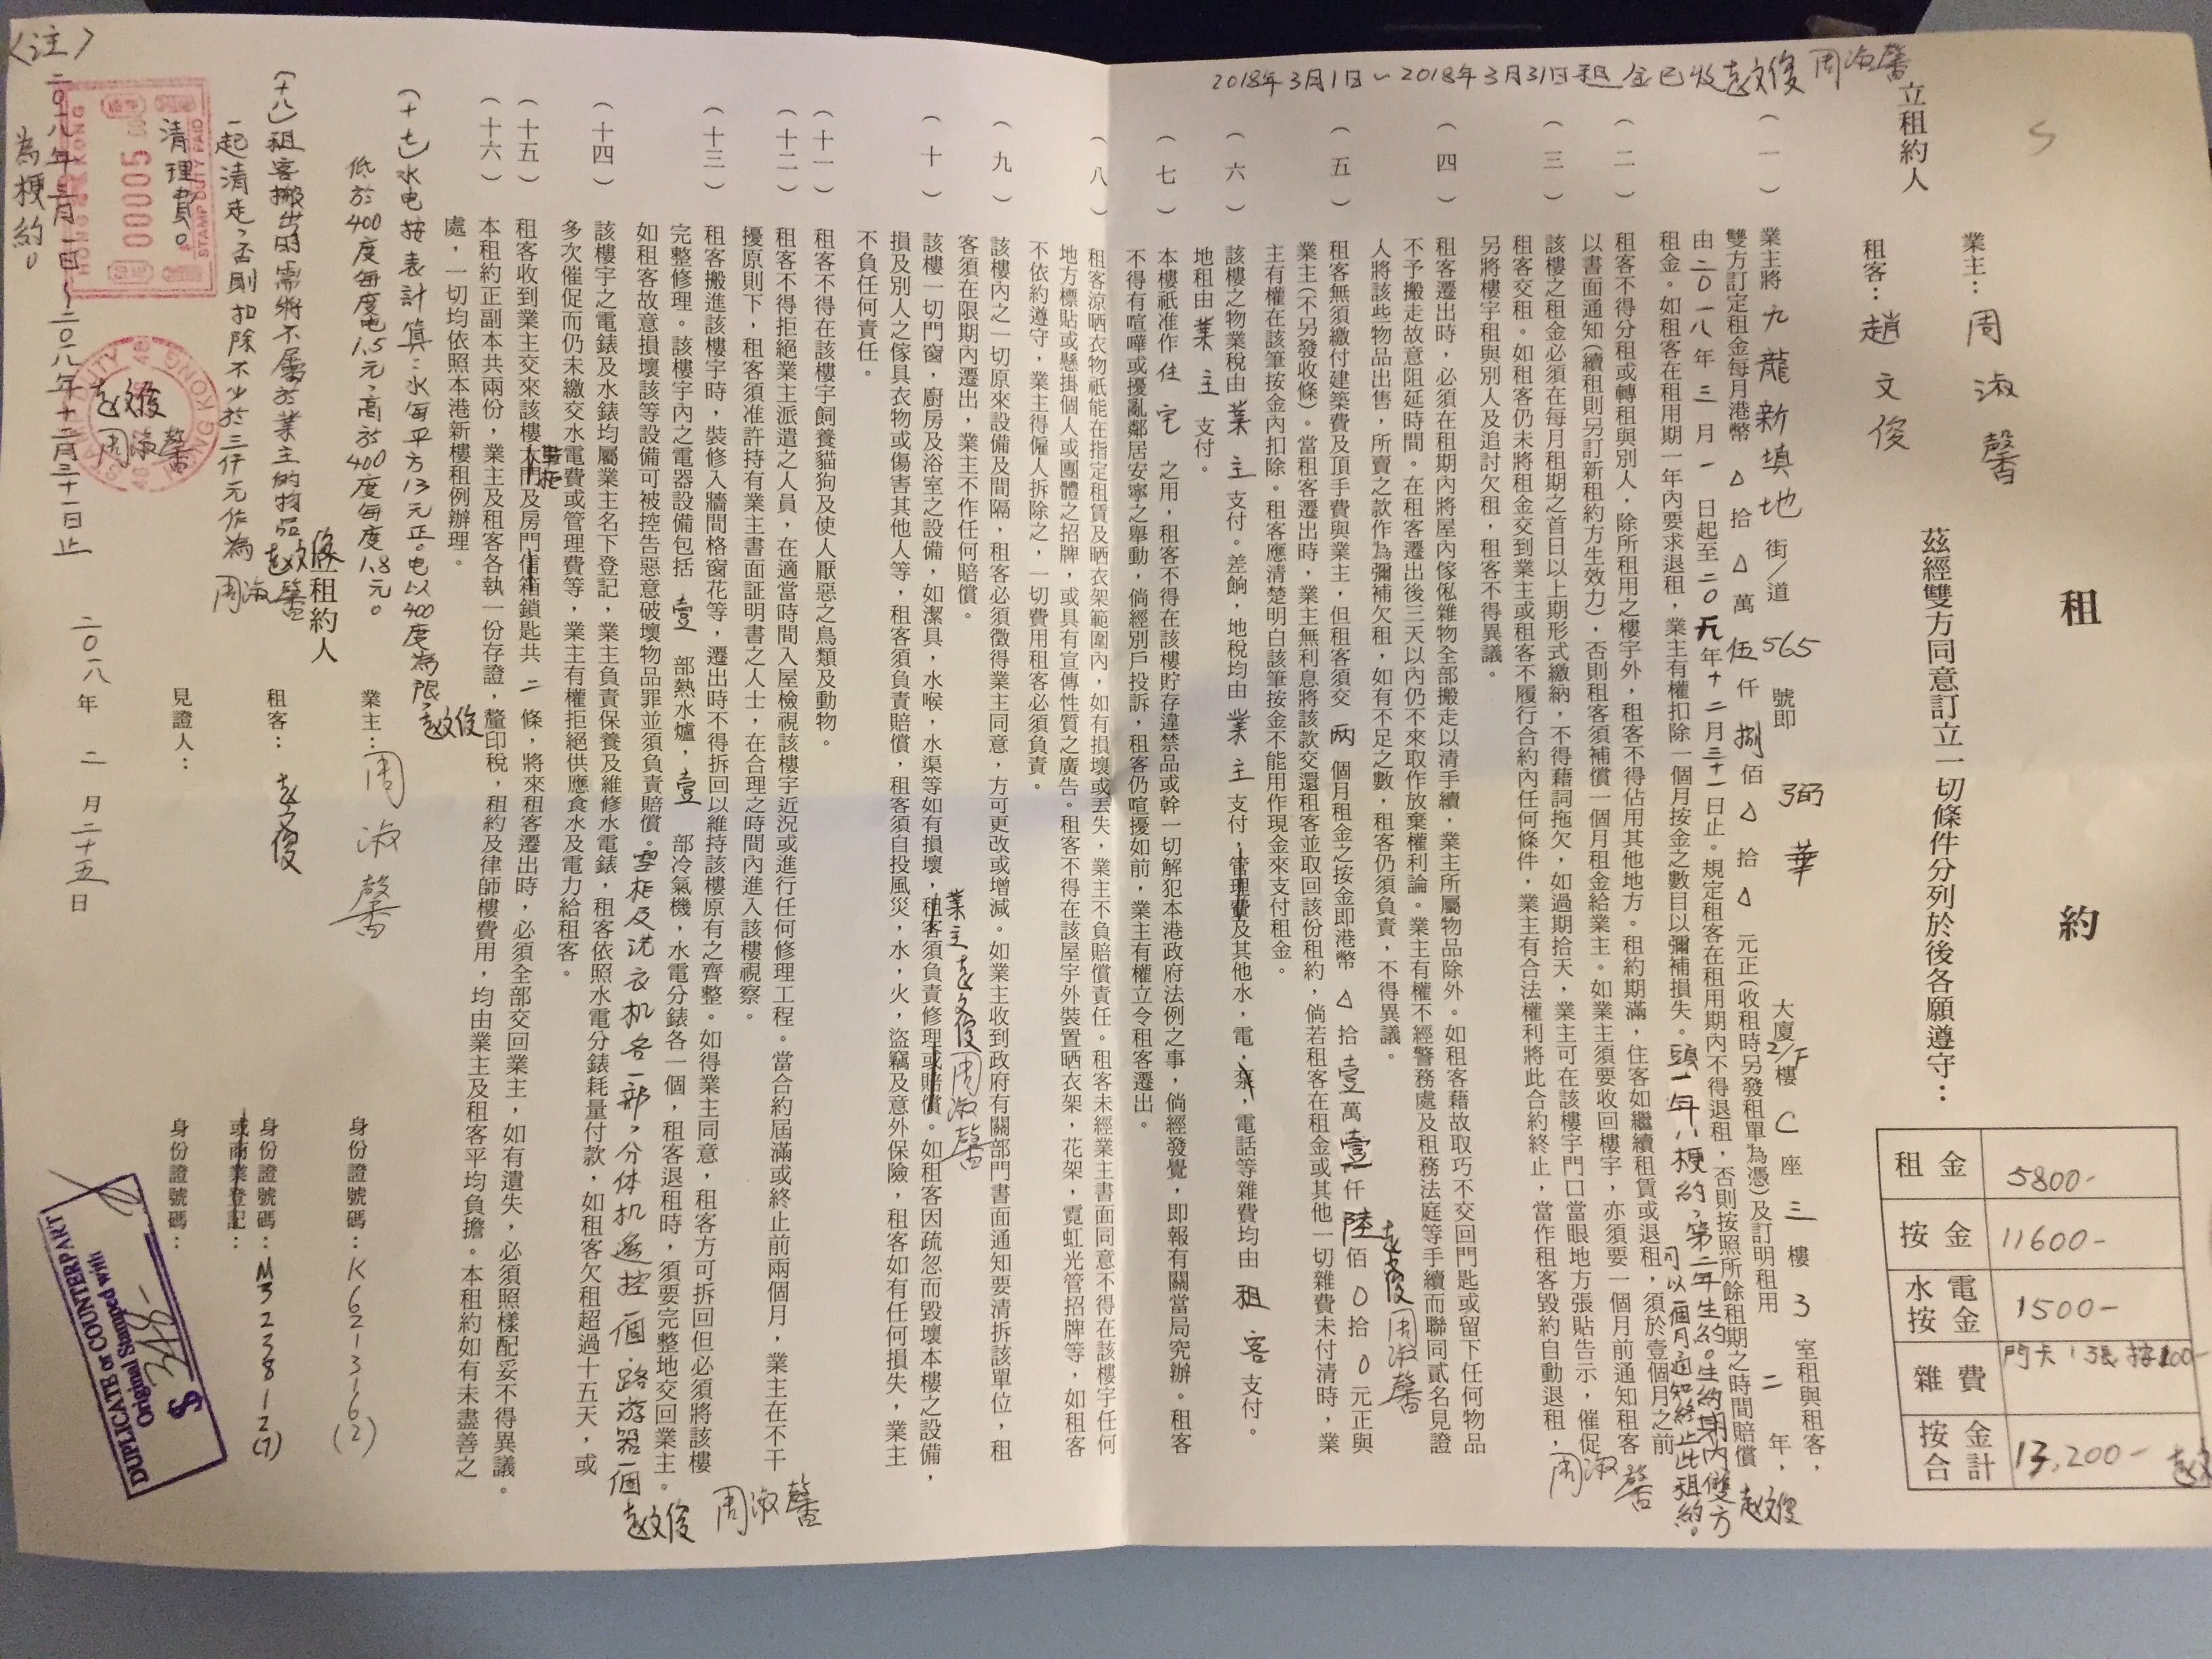 租約
茲經雙方同意訂立一切條件分列於後各願遵守：
租金 5800-
按金 11600-
水電按金 1500-
雜費 門卡1張按100-
按金合計 13,200-
立租約人
業主：周淑馨
租客：趙文俊
2018年3月1日～2018年3月31日租金已收 趙文俊 周淑馨
（一）業主將九龍新填地街/道565號即弼華大廈2/F樓C座三樓3室租與租客，
雙方訂定租金每月港幣△拾△萬伍仟捌佰△拾△元正(收租時另發租單為憑)及訂明租用二年，
由二0一八年三月一日起至二0一九年十二月三十一日止。規定租客在租用期內不得退租，否則按照所餘租期之時間賠償
租金。如租客在租用期一年內要求退租，業主有權扣除一個月按金之數目以彌補損失。頭一年梗約，第二年生約。生約期內雙方
可以一個月通知終止此租約。
趙文俊 周淑馨
（二）租客不得分租或轉租與別人，除所租用之樓宇外，租客不得佔用其他地方。租約期滿，住客如繼續租賃或退租，須於壹個月之前
以書面通知(續租則另訂新租約方生效力)，否則租客須補償一個月租金給業主。如業主須要收回樓宇，亦須要一個月前通知租客
（三）該樓之租金必須在每月租期之首日以上期形式繳納，不得藉詞拖欠，如過期拾天，業主可在該樓宇門口當眼地方張貼告示，催促
租客交租。如租客仍未將租金交到業主或租客不履行合約內任何條件，業主有合法權利將此合約終止，當作租客毀約自動退租，
另將樓宇租與別人及追討欠租，租客不得異議。
（四）租客遷出時，必須在租期內將屋內傢俬雜物全部搬走以清手續，業主所屬物品除外。如租客藉故取巧不交回門匙或留下任何物品
不予搬走故意阻延時間。在租客遷出後三天以內仍不來取作放棄權利論。業主有權不經警務處及租務法庭等手續而聯同貳名見證
人將該些物品出售，所賣之款作為彌補欠租，如有不足之數，租客仍須負責，不得異議。
（五）租客無須繳付建築費及頂手費與業主，但租客須交兩個月租金之按金即港幣△拾壹萬壹仟陸佰0拾0元正與
業主(不另發收條)。當租客遷出時，業主無利息將該款交還租客並取回該份租約，倘若租客在租金或其他一切雜費未付清時，業
主有權在該筆按金內扣除。租客應清楚明白該筆按金不能用作現金來支付租金。
趙文俊 周淑馨
（六）該樓之物業稅由業主支付。差餉，地稅均由業主支付，管理費及其他水，電，泵，電話等雜費均由租客支付。
地租由業主支付。
（七）本樓祇准作住宅之用，租客不得在該樓貯存違禁品或幹一切觸犯本港政府法例之事，倘經發覺，即報有關當局究辦。租客
不得有喧嘩或擾亂鄰居安寧之舉動，倘經別戶投訴，租客仍喧擾如前，業主有權立令租客遷出。
（八）租客涼晒衣物祇能在指定租賃及晒衣架範圍內，如有損壞或丟失，業主不負賠償責任。租客未經業主書面同意不得在該樓宇任何
地方標貼或懸掛個人或團體之招牌，或具有宣傳性質之廣告。租客不得在該屋宇外裝置晒衣架，花架，霓虹光管招牌等，如租客
不依約遵守，業主得僱人拆除之，一切費用租客必須負責。
（九）該樓內之一切原來設備及間隔，租客必須徵得業主同意，方可更改或增減。如業主收到政府有關部門書面通知要清拆該單位，租
客須在限期內遷出，業主不作任何賠償。
（十）該樓一切門窗，廚房及浴室之設備，如潔具，水喉，水渠等如有損壞，租客須負責修理或賠償。如租客因疏忽而毀壞本樓之設備，
業主 趙文俊 周淑馨
損及別人之傢具衣物或傷害其他人等，租客須負責賠償，租客須自投風災，水，火，盜竊及意外保險，租客如有任何損失，業主
不負任何責任。
（十一）租客不得在該樓宇飼養貓狗及使人厭惡之鳥類及動物。
（十二）租客不得拒絕業主派遣之人員，在適當時間入屋檢視該樓宇近況或進行任何修理工程。當合約屆滿或終止前兩個月，業主在不干
擾原則下，租客須准許持有業主書面証明書之人士，在合理之時間內進入該樓視察。
（十三）租客搬進該樓宇時，裝修入牆間格窗花等，遷出時不得拆回以維持該樓原有之齊整。如得業主同意，租客方可拆回但必須將該樓
完整修理。該樓宇內之電器設備包括壹部熱水爐，壹部冷氣機，水電分錶各一個，租客退租時，須要完整地交回業主。
如租客故意損壞該等設備可被控告惡意破壞物品罪並須負責賠償。雪柜及洗衣机各一部，分体机遙控一個 路游器一個
趙文俊 周淑馨
（十四）該樓宇之電錶及水錶均屬業主名下登記，業主負責保養及維修水電錶，租客依照水電分錶耗量付款，如租客欠租超過十五天，或
多次催促而仍未繳交水電費或管理費等，業主有權拒絕供應食水及電力給租客。
（十五）租客收到業主交來該樓大門及房門信箱鎖匙共二條，將來租客遷出時，必須全部交回業主，如有遺失，必須照樣配妥不得異議。
（十六）本租約正副本共兩份，業主及租客各執一份存證，釐印稅，租約及律師樓費用，均由業主及租客平均負擔。本租約如有未盡善之
處，一切均依照本港新樓租例辦理。
（十七）水电按表計算：水每平方13元正。电以400度為限，趙文俊
低於400度每度电1.5元，高於400度每度1.8元。
（十八）租客搬出時需將不屬於業主的物品
一起清走，否則扣除不少於三仟元作為
清理費。
趙文俊 周淑馨
〈注〉
二0一八年三月一日～二0一八年十二月三十一日止
為梗約。
趙文俊 周淑馨
HONG KONG
00005
STAMP DUTY PAID
立租約人
業主：周淑馨 身份證號碼：K621316(2)
租客：趙文俊 身份證號碼：M323812(7)
或商業登記：
見證人： 身份證號碼：
二0一八年二月二十五日
DUPLICATE or COUNTERPART
Original Stamped with
$